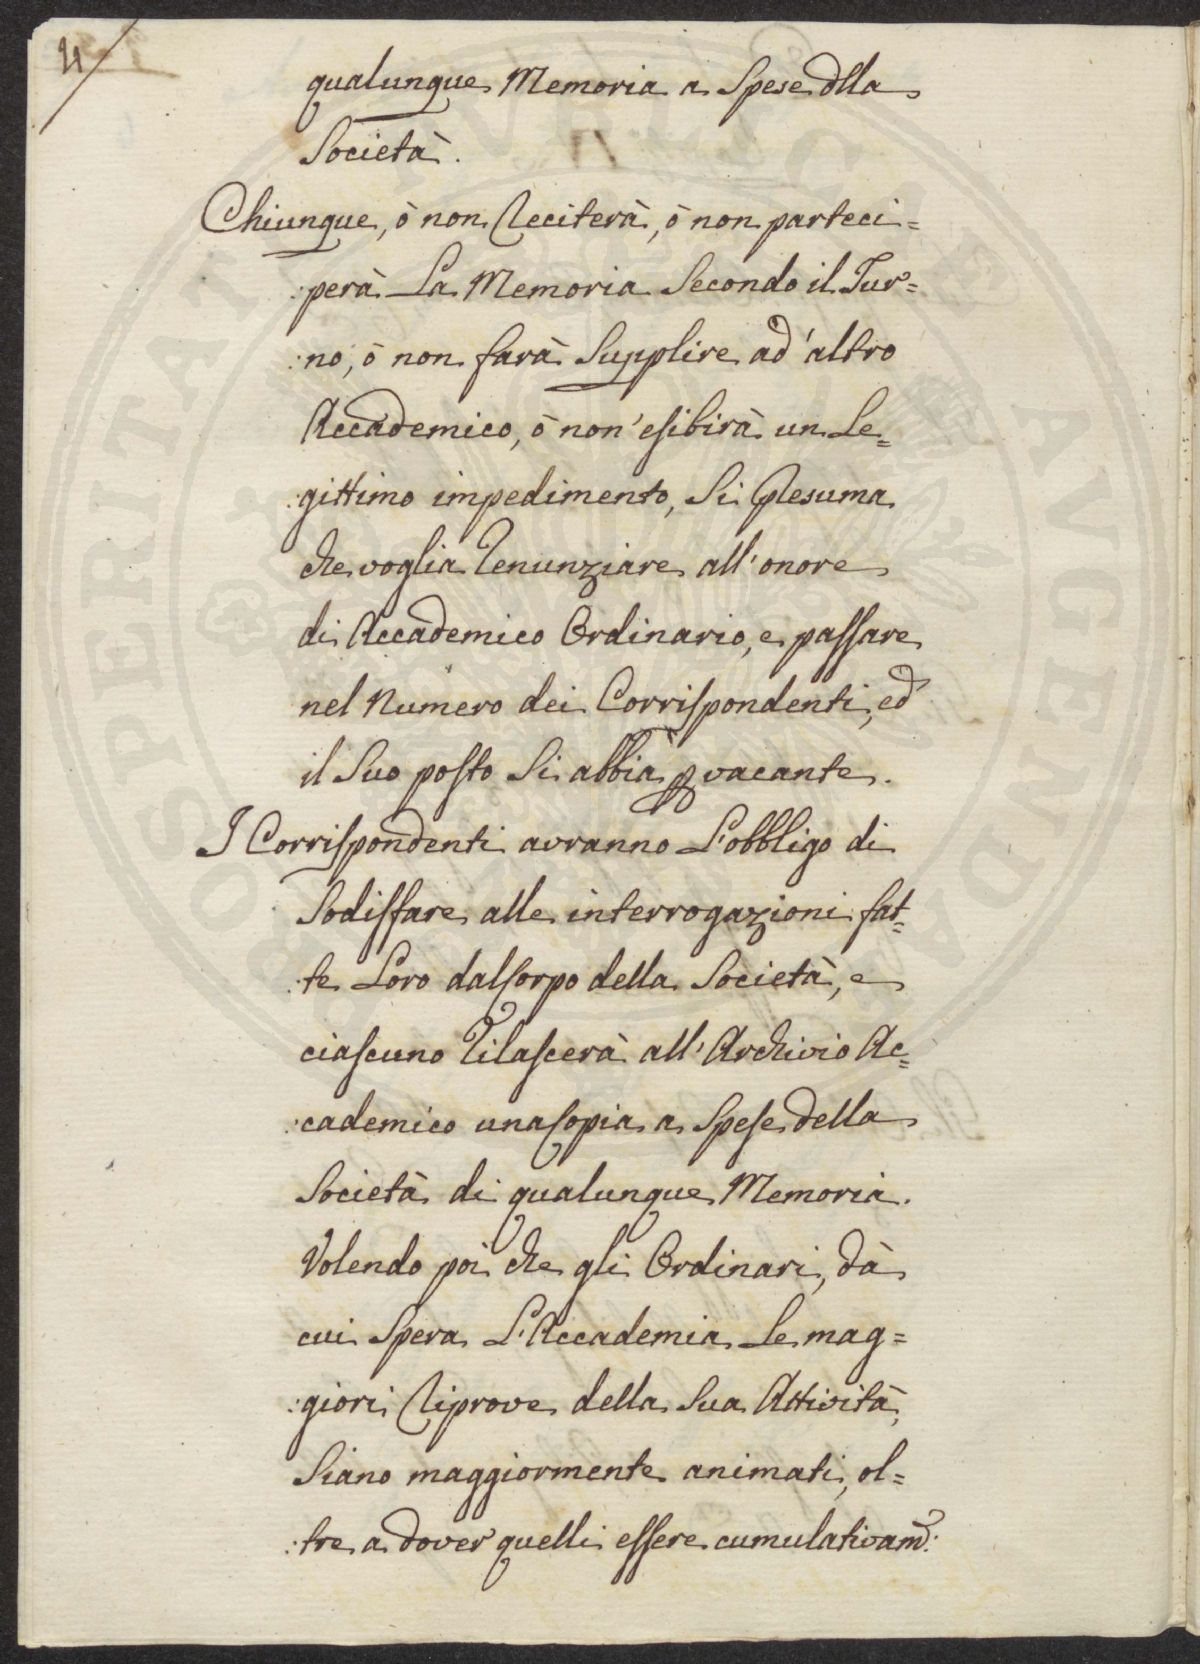 4
qualungue Memoria a Spese dlla
Società.
Chiungue, ò non Reciterà, ò non parteci=
:perà La Memoria Secondo il Tur=
:no, ò non farà Supplire ad'altro
Accademico, ò non'esibirà un Le=
:gittimo impedimento, Si Presuma
che voglia Renunziare all'onore
di Accademico Ordinario, e passare
nel Numero dei Corrispondenti, ed
il Suo posto Si abbia p vacante.
I Corrispondenti avranno L'obbligo di
Sodisfare alle interrogazioni fat=
:te Loro dal Corpo della Società, e
ciascuno Rilascerà all'Archivio Ac=
:cademico una Copia a Spese della
Società di qualungue Memoria.
Volendo poi che gli Ordinari, dà
cui Spera L'Accademia Le mag=
:giori Riprove della Sua Attività,
Siano maggiormente animati, ol=
:tre a dover quelli essere cumulativamē:
PROSPERITATI PVBLICAE AVGENDAE